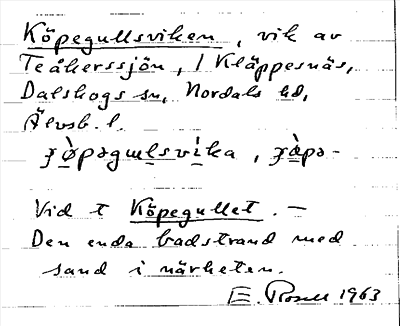 Köpegullsviken, vik av
Teåkerssjön, i Kläppesnäs,
Dalskogs sn, Nordals hd,
Älvsb. l.
ʒø̀pəgulsvìka, ʒàpə-
Vid t Köpegullet. —
Den enda badstrand med
sand i närheten.
E. Rosell 1963